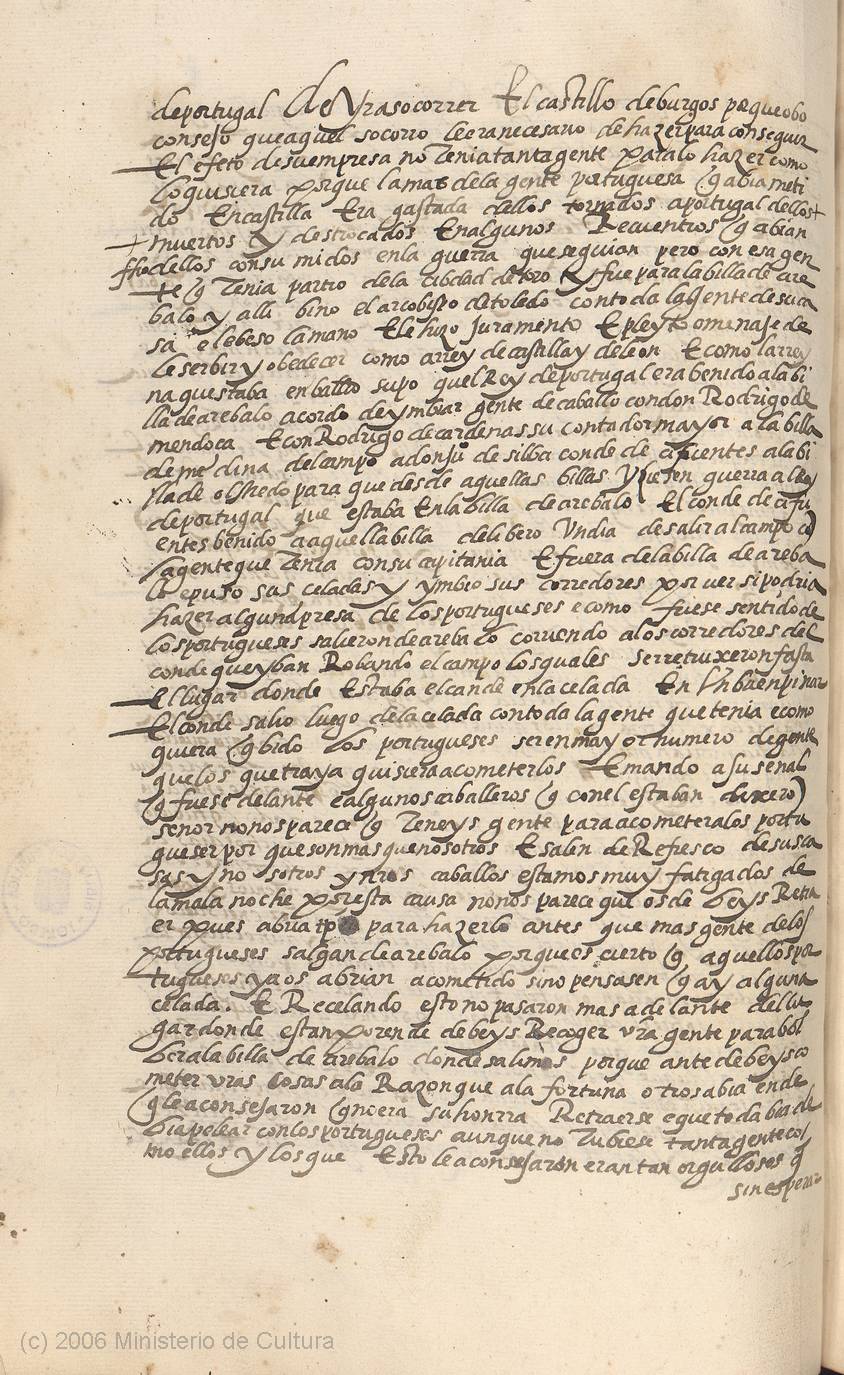 deportugal de yr a socorrer El castillo de burgos porque obo
consejo que aquel socorro le era necesario de hazer para conseguir
El efeto de su empresa no Tenia tanta gente para lo hazer como
lo quisiera porque la mas de la gente portuguesa q abia meti
do En castilla Era gastada dellos tornados a portugal dellos +
+ muertos y destrocados En algunos Recuentros q abian
fho dellos consumidos en la guerra que seguian pero con esa gen
te q Tenia partio de la cibdad de toro y fue para la billa de are
balo y alli bino el arcobispo de toledo con toda la gente de su ca
sa e le beso la mano E le hizo juramento E pleyto omenaje de
le serbir y obedecer como a rrey de castilla y de leon E como la rrey
na questaba en ballid supo quel Rey de portugal era benido a la bi
lla de arebalo acordo de ymbiar gente de caballo con don Rodrigo de
mendoca E con Rodrigo de cardenas su contador mayor a la billa
de medina del campo a don juo de silba conde de cifuentes a la bi
lla de olmedo para que desde aquellas billas yciesen guerra al Rey
de portugal que estaba En la billa de arebalo El conde de cifu
entes benido a aquella billa delibero Un dia de salir al campo co
la gente que Tenia con su capitania E fuera de la billa de areba
lo puso sus celadas y ymbio sus corredores por ver si podria
hazer algund presa de los portugueses e como fuese sentido de
los portugueses salieron de arebalo corriendo a los corredores del
conde que yban Robando el campo los quales se rretruxeron fasta
El lugar donde Estaba el conde en la celada En Un buen pinar
El conde salio luego de la celada con toda la gente que tenia e como
quiera q bido los portugueses ser en mayor numero de gente
que los que traya quisiera acometerlos E mando a su senal
q fuese delante e algunos caballeros q con el estaban dixero
senor no nos parece q Teneys gente para acometer a los portu
gueser por que son mas que nosotros E salen de Refresco de sus ca
sas y nosotros y nros caballos estamos muy fatigados de
la mala noche por esta causa no nos parece que os debeys Retra
er pues abria tpo para hazerlo antes que mas gente de los
portugueses salgan de arebalo porque es cierto q aquellos por
tugueses ya os abrian acometido sino pensasen q ay alguna
celada. E Recelando esto no pasaron mas adelante del lu
gar donde estan por ende debeys Recoger vra gente para bol
ber a la billa de arebalo donde salimos porque ante debeys co
meter vras cosas a la Razon que a la fortuna otros abia ende
q le aconsejaron q no era su honrra Retraerse e que todabia de
bia pelear con los portugueses aunque no Tubiese tanta gente co
mo ellos y los que Esto le aconsejaron eran tan orgullosos q
sin esperar
(c) 2006 Ministerio de Cultura